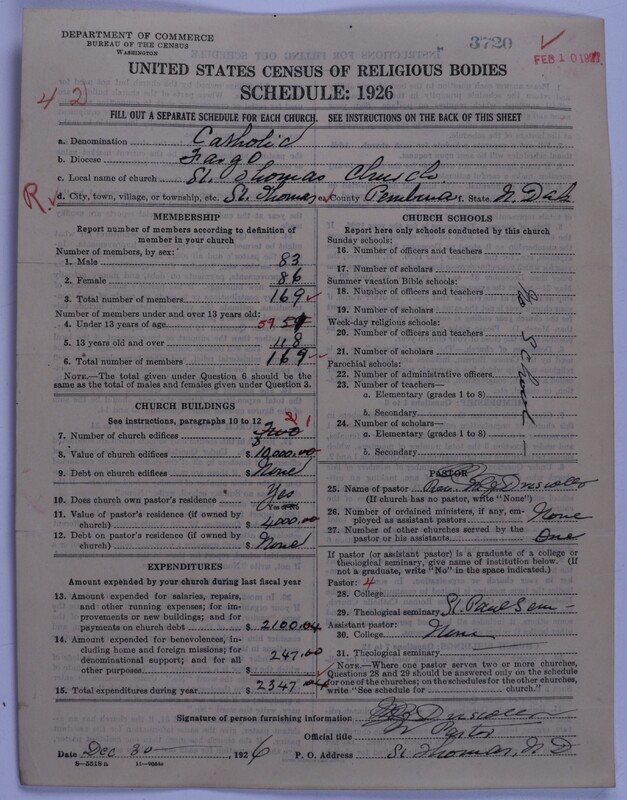 DEPARTMENT OF COMMERCE
BUREAU OF THE CENSUS
WASHINGTON
3720
FEB 10 1927
UNITED STATES CENSUS OF RELIGIOUS BODIES
SCHEDULE: 1926
42
FILL OUT A SEPARATE SCHEDULE FOR EACH CHURCH. SEE INSTRUCTIONS ON THE BACK OF THIS SHEET
a. Denomination Catholic
b. Diocese Fargo
c. Local name of church St. Thomas Church
R.
d. City, town, village, or township, etc. St. Thomas e. County Pembina f. State N. Dak
MEMBERSHIP
Report number of members according to definition of member in your church
Number of members, by sex:
1. Male 83
2. Female 86
3. Total number of members 169
Number of members under and over 13 years old:
4. Under 13 years of age 59 51
5. 13 years old and over 118
6. Total number of members 169
NOTE.—The total given under Question 6 should be the same as the total of males and females given under Question 3.
CHURCH BUILDINGS
See instructions, paragraphs 10 to 12
7. Number of church edifices Two 1
8. Value of church edifices $ 10,000.00
9. Debt on church edifices $ None
10. Does church own pastor's residence Yes
Yes or No
11. Value of pastor's residence (if owned by church) $ 4000.00
12. Debt on pastor's residence (if owned by church) $ None
EXPENDITURES
Amount expended by your church during last fiscal year
13. Amount expended for salaries, repairs, and other running expenses; for improvements or new buildings; and for payments on church debt $ 2100.04
14. Amount expended for benevolences, including home and foreign missions; for denominational support; and for all other purposes $ 247.00
15. Total expenditures during year $ 2347.04
CHURCH SCHOOLS
Report here only schools conducted by this church
Sunday schools:
16. Number of officers and teachers
17. Number of scholars
Summer vacation Bible schools:
18. Number of officers and teachers
19. Number of scholars
Week-day religious schools:
20. Number of officers and teachers
21. Number of scholars
Parochial schools:
22. Number of administrative officers
23. Number of teachers—
a. Elementary (grades 1 to 8)
b. Secondary
24. Number of scholars—
a. Elementary (grades 1 to 8)
b. Secondary
No School
PASTOR
25. Name of pastor Rev. M J Driscoll
(If church has no pastor, write "None")
26. Number of ordained ministers, if any, employed as assistant pastors None
27. Number of other churches served by the pastor or his assistants One
If pastor (or assistant pastor) is a graduate of a college or theological seminary, give name of institution below. (If not a graduate, write "No" in the space indicated.)
Pastor: 4
28. College
29. Theological seminary St. Paul Sem
Assistant pastor:
30. College None
31. Theological seminary
NOTE.—Where one pastor serves two or more churches, Questions 28 and 29 should be answered only on the schedule for one of the churches; on the schedules for the other churches, write "See schedule for church."
Signature of person furnishing information M J Driscoll
Official title Pastor
Date Dec 30, 1926 P. O. Address St Thomas, N D
8—5518 a